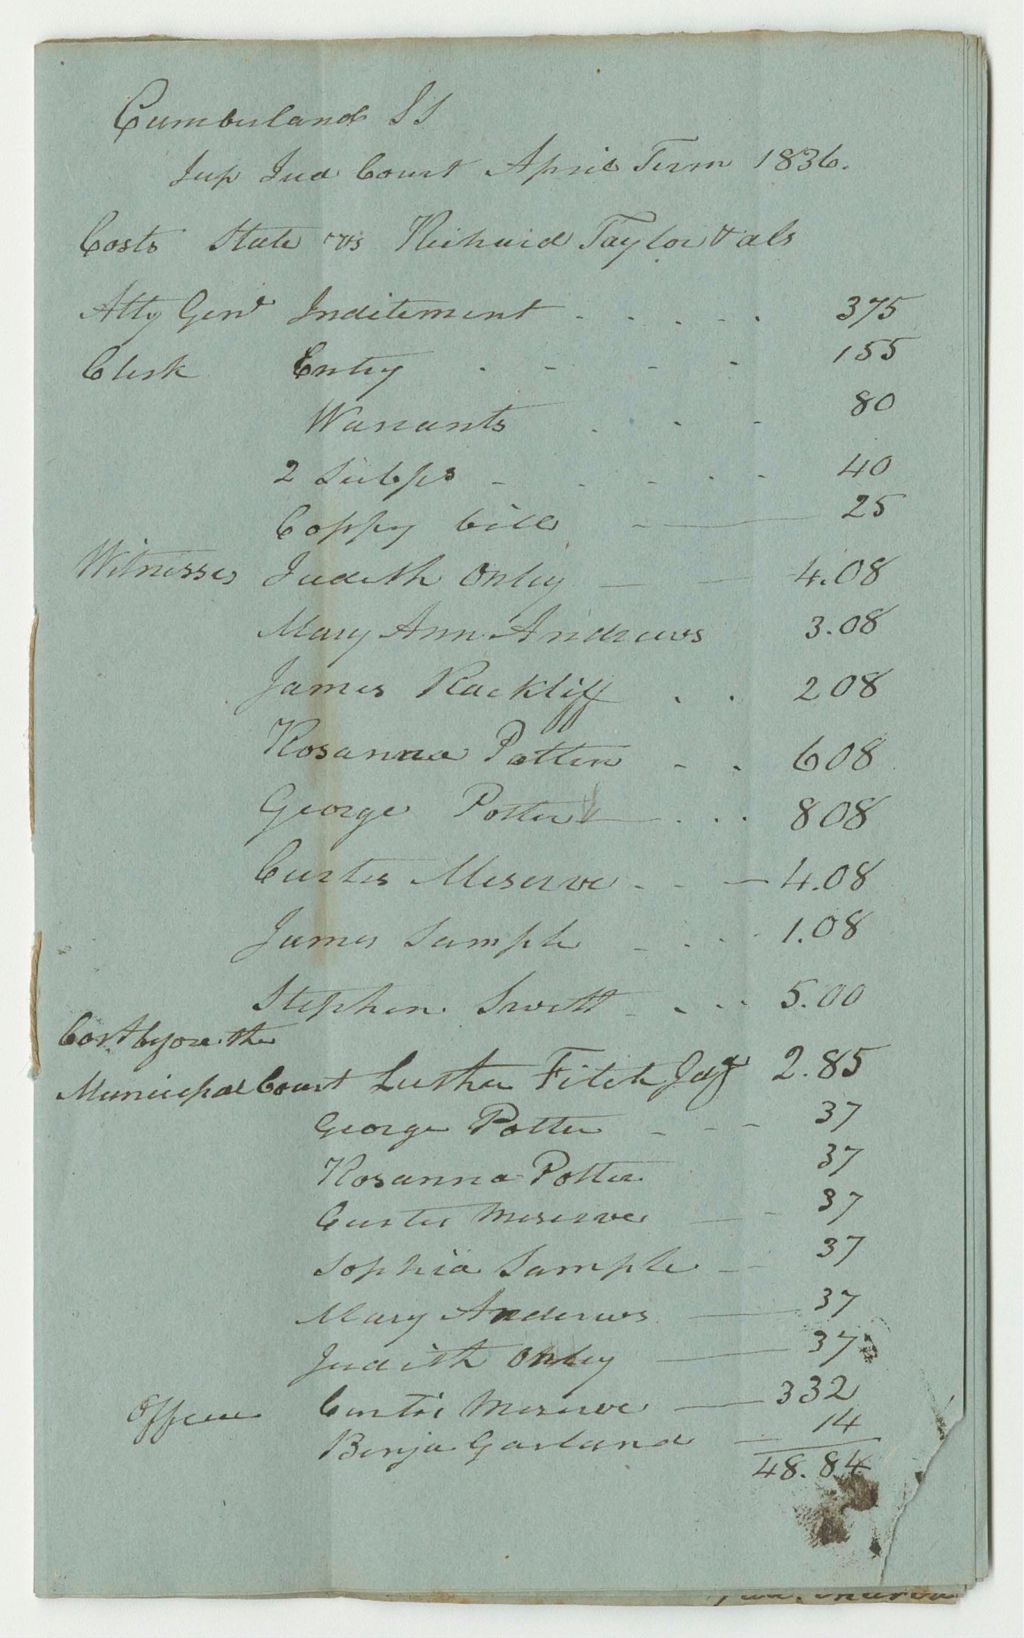 Cumberland SS
Sup Jud Court April Term 1836.
Costs State vs Richard Taylor & als
Atty Genl Inditement - - - - - 375
Clerk Entry - - - - 155
Warrants - - - 80
2 Subps - - - - - 40
Coppy bill - — 25
Witnesses Judith Onley — — 4.08
Mary Ann Andrews 3.08
James Rackliff - - 208
Rosanna Potter - - 608
George Potter - - - 808
Curtes Meserve - - — 4.08
James Sample - - - - 1.08
Stephen Swett - - - 5.00
Cost before the
Municipal Court Luther Fitch Jdg 2.85
George Potter - - - 37
Rosanna Potter 37
Curtis Meserve — - 37
Sophia Sample - - 37
Mary Andrews — 37
Judith Onley — 37
Officer Curtis Meserve — 332
Benja Garland — 14
48.84